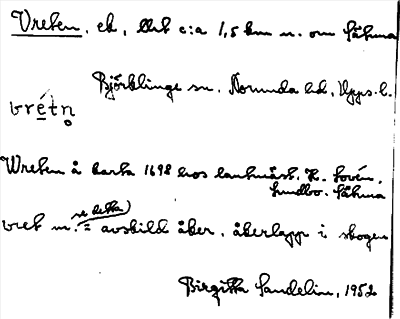 Vreten, ek, litet c:a 1,5 km n. om Låhma
Björklinge sn. Norunda hd, Upps. l.
vrétn̥
Wreten å karta 1698 hos lantmät. K. Lovén,
Lundbo. Låhma
se detta)
vret m. = avskild åker, åkerlapp i skogen
Birgitta Sandelin, 1952